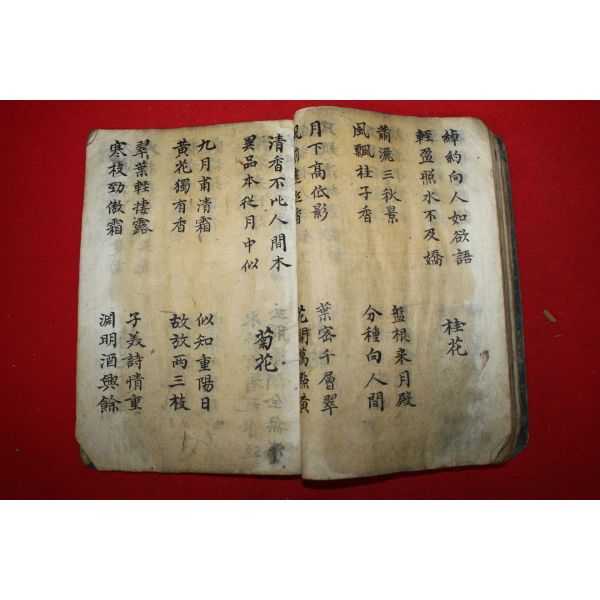 綽約向人如欲語
輕盈照水不及嬌
桂花
蕭灑三秋景
風飄桂子香
盤根来月殿
分種向人間
月下高低影
風前遠近香
葉密千層翠
花開萬點黄
清香不比人間木
異品本從月中似
菊花
九月甫清霜
黄花獨有香
似知重陽日
故放两三枝
翠葉輕捿露
寒枝勁傲霜
子美詩情重
淵明酒興餘